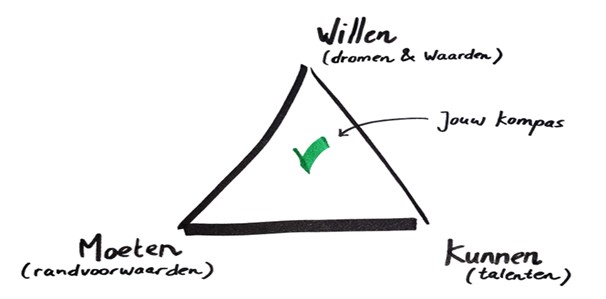 Willen
(dromen & waarden)
Jouw kompas
Moeten
(randvoorwaarden)
Kunnen
(talenten)